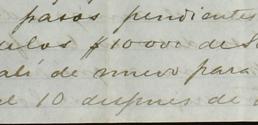 pasos pendientes
los $10000 de S
alí de nuevo para
el 10 despues de